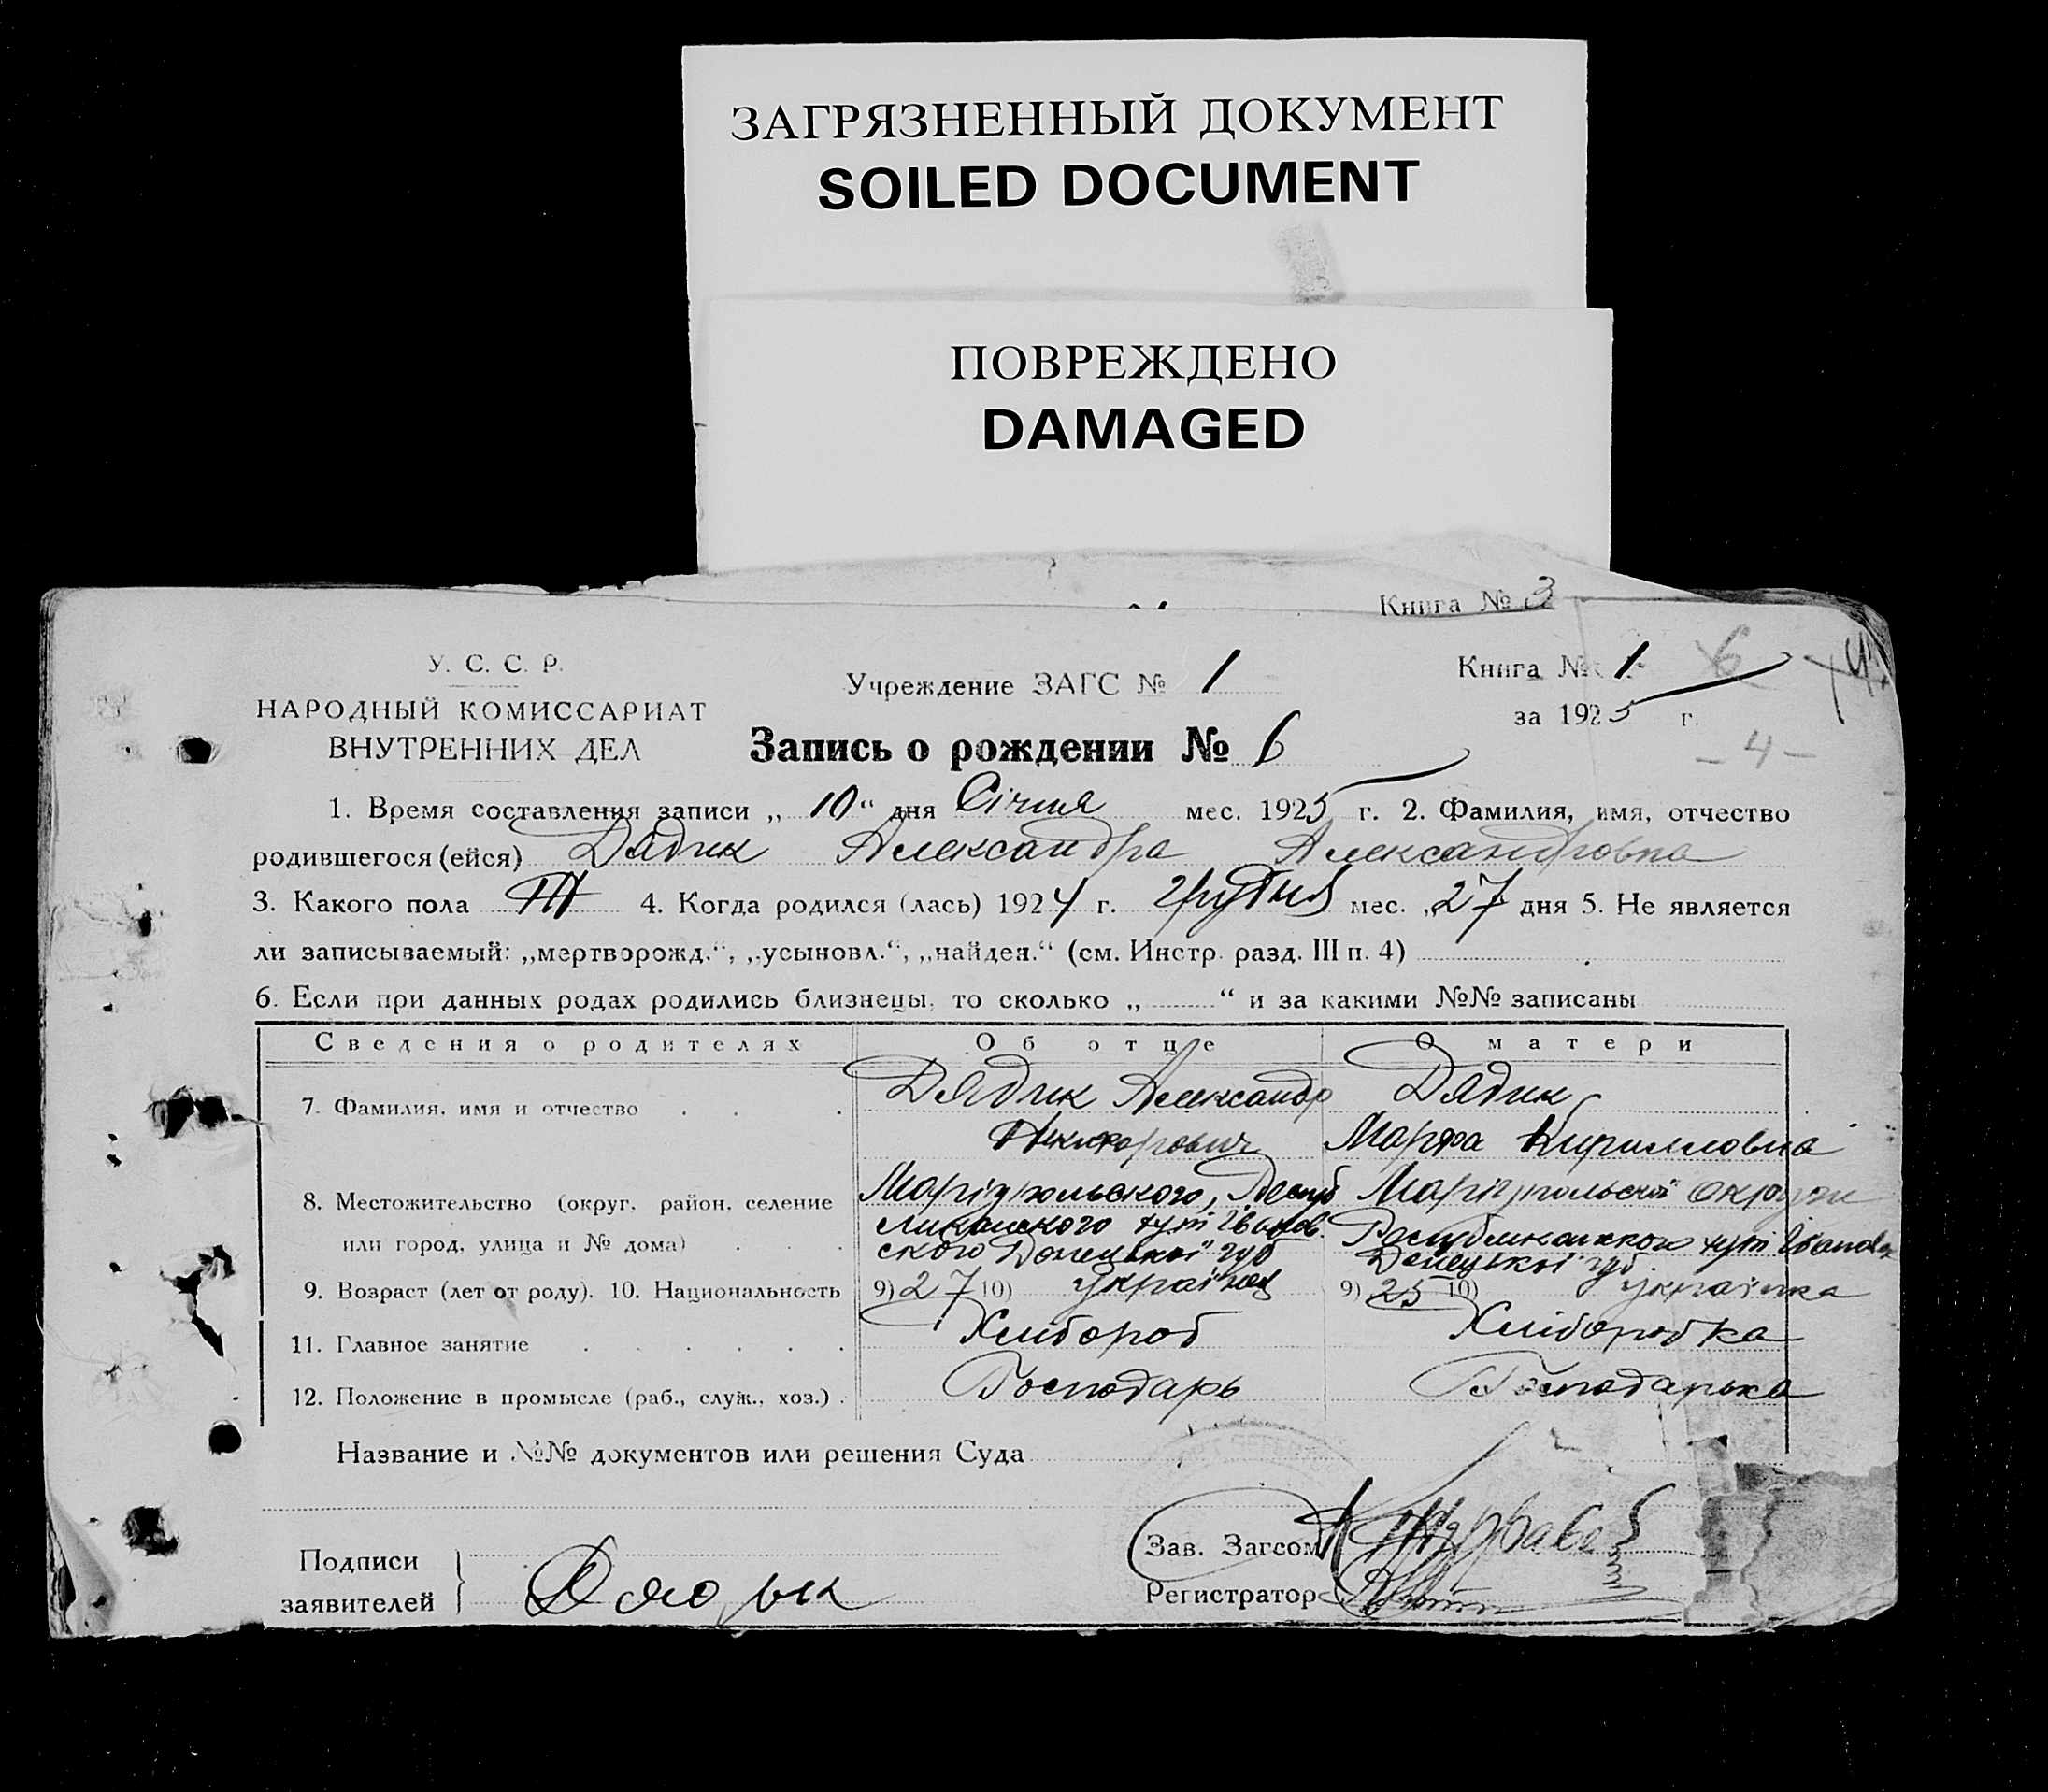 ЗАГРЯЗНЕННЫЙ ДОКУМЕНТ
SOILED DOCUMENT
ПОВРЕЖДЕНО
DAMAGED
Книга № 3
У. С. С. Р.
НАРОДНЫЙ КОМИССАРИАТ
ВНУТРЕННИХ ДЕЛ
Учреждение ЗАГС № 1
Книга № 1
6
за 1925 г.
- 4 -
Запись о рождении № 6
1. Время составления записи „ 10 “ дня Січня мес. 1925 г. 2. Фамилия, имя, отчество
родившегося (ейся) Дядик Александра Александровна
3. Какого пола 4. Когда родился (лась) 1924 г. грудня мес. „27 дня 5. Не является
ли записываемый: „мертворожд.“, „усыновл.“, „найден.“ (см. Инстр. разд. III п. 4)
6. Если при данных родах родились близнецы, то сколько „ “ и за какими №№ записаны
Сведения о родителях Об отце О матери
7. Фамилия, имя и отчество Дядик Александр Дядик
Никифорович Марфа Кирилловна
8. Местожительство (округ, район, селение Маріупольского, Респуб Маріупольскої округи
или город, улица и № дома) ликанского хут Іванов Республиканского хут Іванов
ского Донецької губ Донецької губ
9. Возраст (лет от роду). 10. Национальность 9) 27 10) Українец 9) 25 10) українка
11. Главное занятие Хлібороб Хліборобка
12. Положение в промысле (раб., служ., хоз.) Господарь Господарька
Название и №№ документов или решения Суда
Зав. Загсом
Подписи
заявителей Дядик
Регистратор